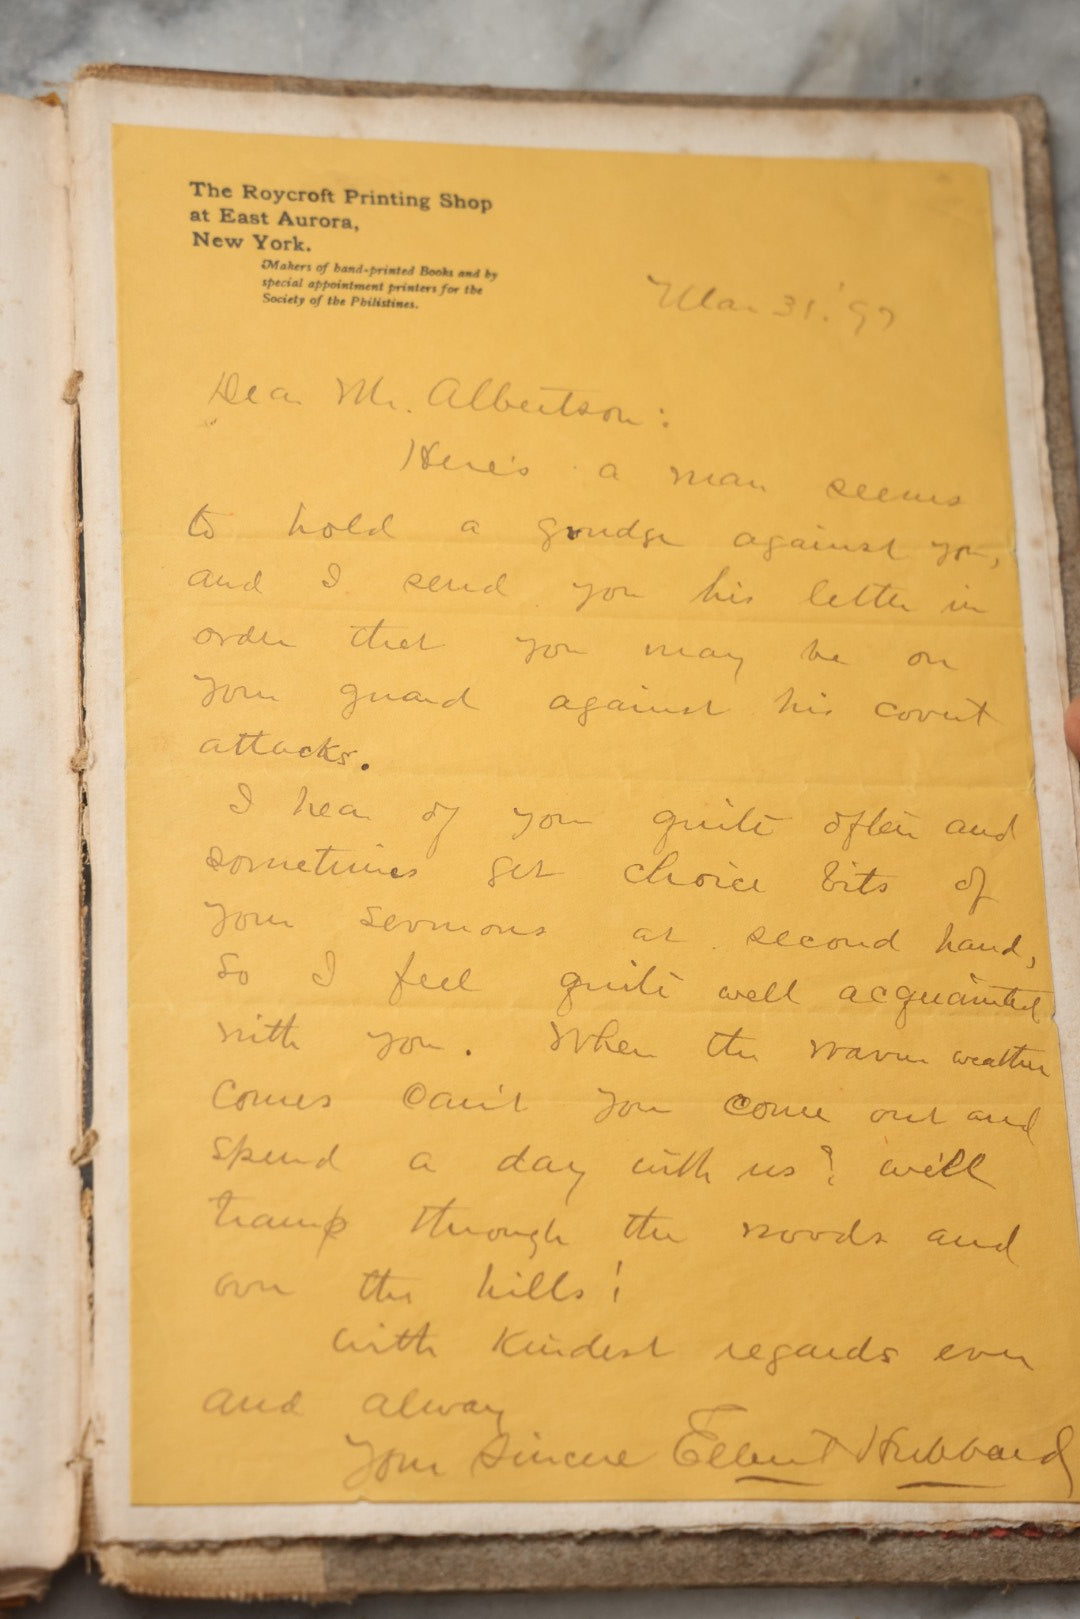 The Roycroft Printing Shop
at East Aurora,
New York.
Makers of hand-printed Books and by
special appointment printers for the
Society of the Philistines.
Mar 31. '97
Dear Mr. Albertson:
Here's a man seems
to hold a grudge against you,
and I send you his letter in
order that you may be on
your guard against his covert
attacks.
I hear of you quite often and
sometimes get choice bits of
your sermons at second hand,
So I feel quite well acquainted
with you. When the warm weather
comes can't you come out and
spend a day with us? we'll
tramp through the woods and
over the hills!
With kindest regards ever
and alway
Your Sincere Elbert Hubbard